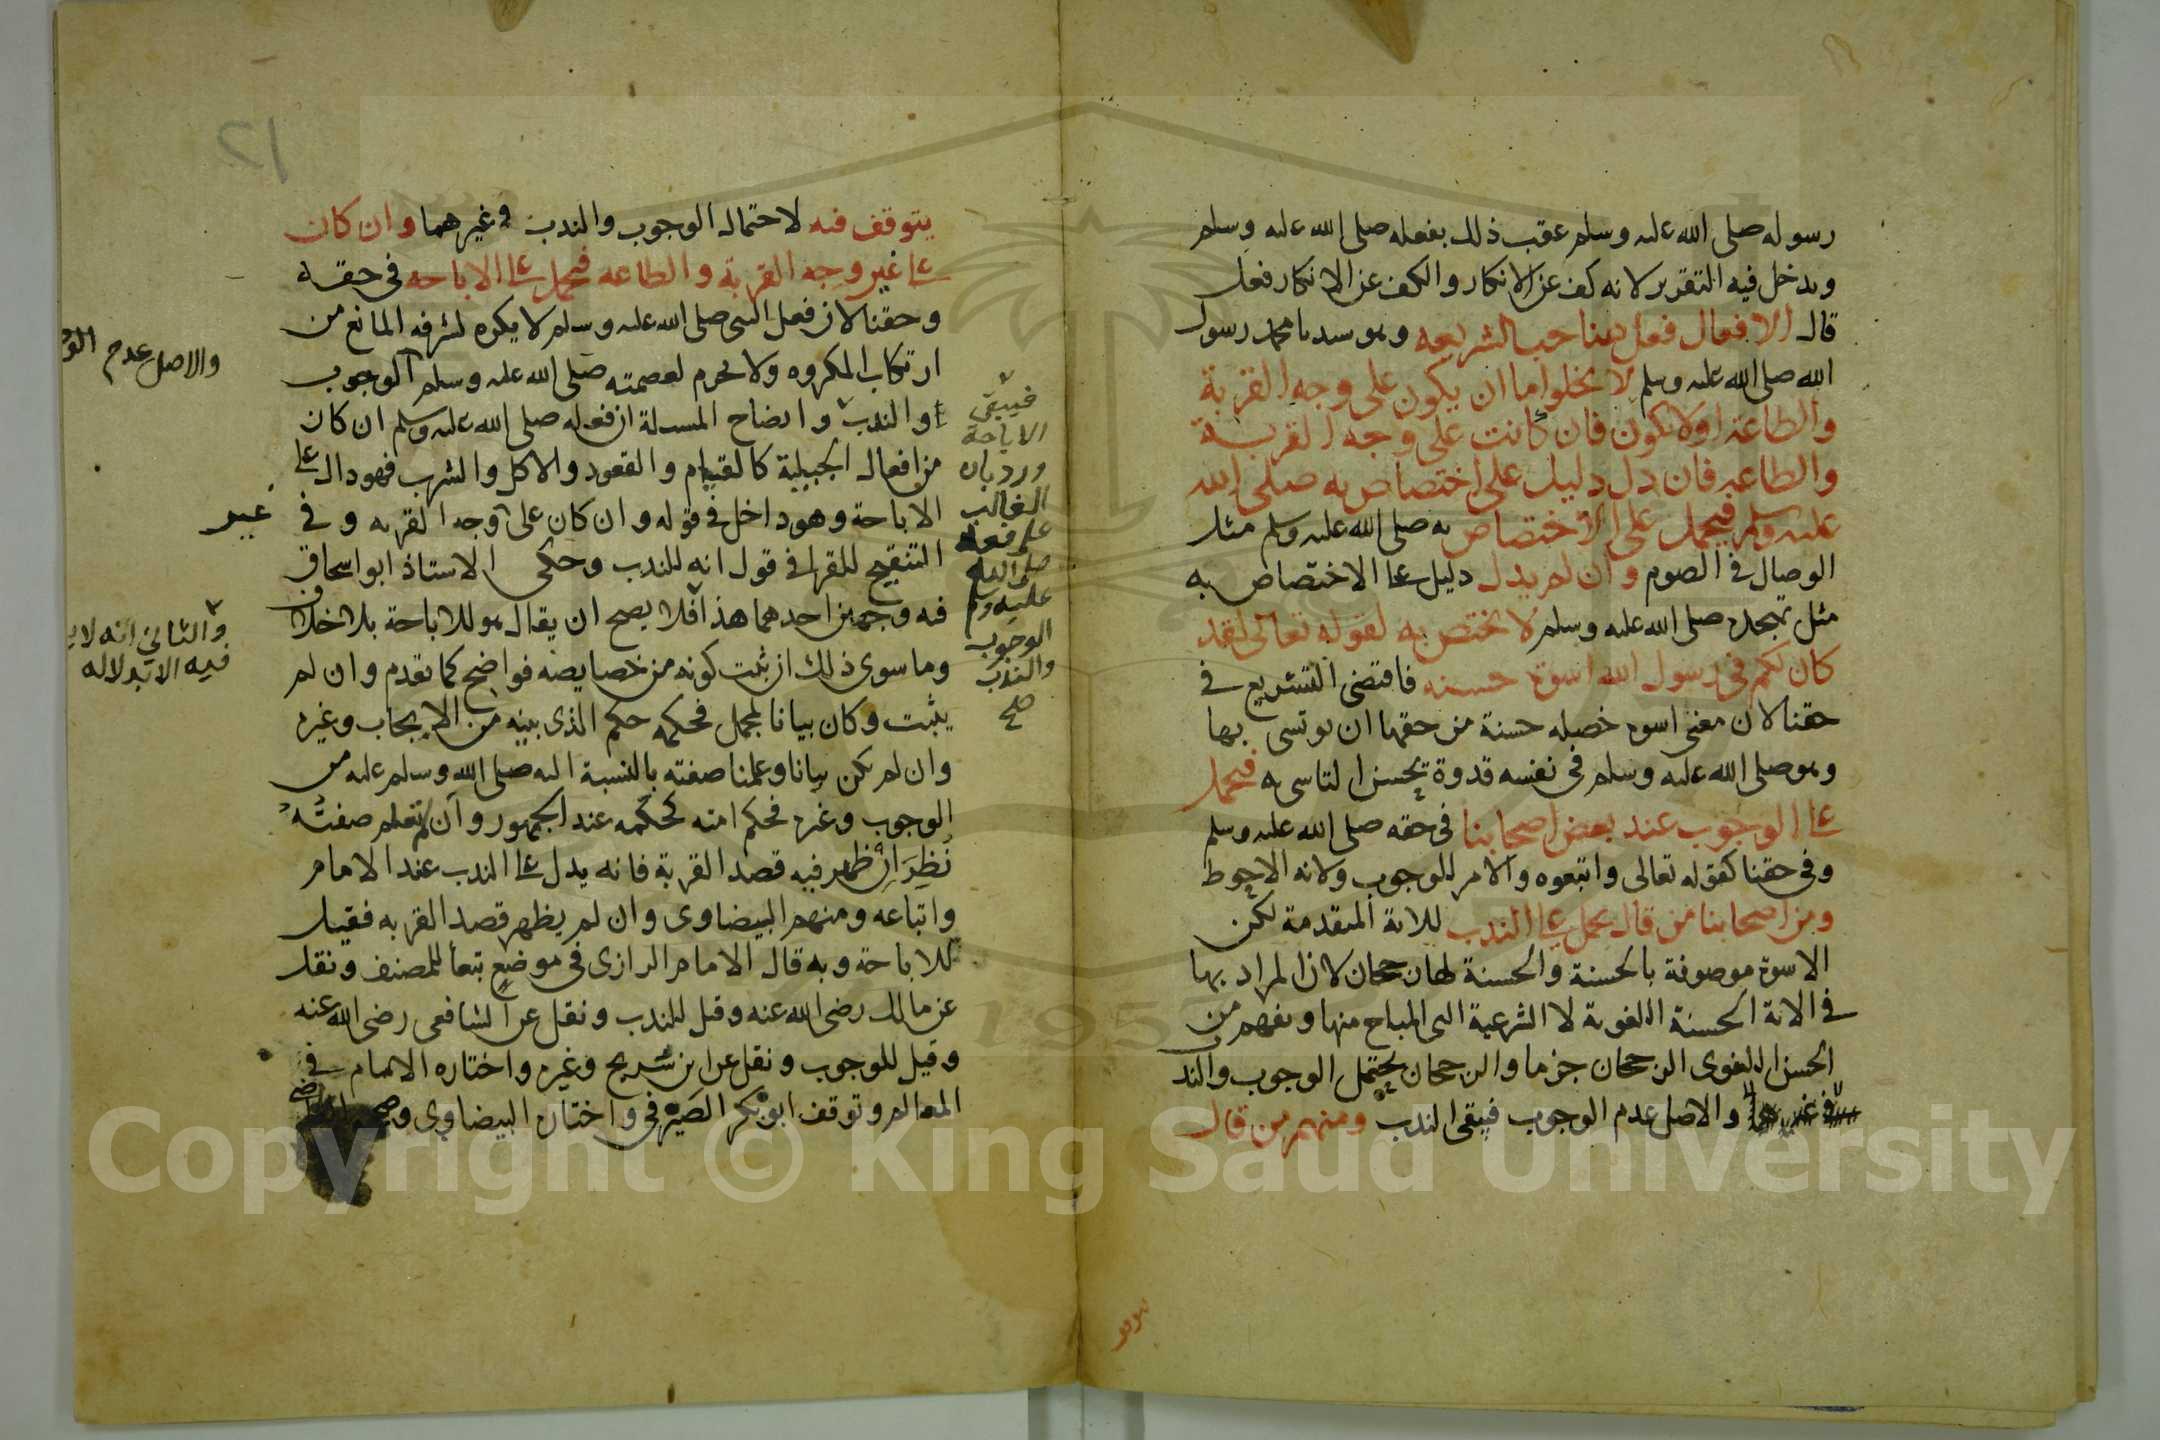 رسوله صلى الله عليه وسلم عقب ذلك بفعله صلى الله عليه وسلم
ويدخل فيه التقرير لانه كف عن الانكار والكف عن الانكار فعل
قال الافعال فعل صاحب الشريعه وهو سيدنا محمد رسول
الله صلى الله عليه وسلم لا يخلوا اما ان يكون على وجه القربة
والطاعة او لا يكون فان كانت على وجه القربة
والطاعه فان دل دليل على اختصاص به صلى الله
عليه وسلم فيحمل على الاختصاص به صلى الله عليه وسلم مثل
الوصال في الصوم وان لم يدل دليل على الاختصاص به
مثل تهجده صلى الله عليه وسلم لا يختص به لقوله تعالى لقد
كان لكم في رسول الله اسوة حسنه فاقتضى التشريع في
حقنا لان معنى اسوه خصله حسنة من حقها ان يوتسى بها
وهو صلى الله عليه وسلم في نفسه قدوة يحسن التاسي به فيحمل
على الوجوب عند بعض اصحابنا في حقه صلى الله عليه وسلم
وفي حقنا كقوله تعالى واتبعوه والامر للوجوب ولانه الاحوط
ومن اصحابنا من قال يحمل على الندب للاية المتقدمة لكن
الاسوة موصوفة بالحسنة والحسنة لها رجحان لان المراد بها
في الاية الحسنة اللغوية لا الشرعية التي المباح منها ويفهم من
الحسن اللغوي الرجحان جزما والرجحان يحتمل الوجوب والند
والاصل عدم الوجوب فيبقى الندب ومنهم من قال
يتوقف فيه لاحتمال الوجوب والندب وغيرهما وان كان
على غير وجه القربة والطاعه فيحمل على الاباحه في حقه
وحقنا لان فعل النبي صلى الله عليه وسلم لا يكره لشرفه المانع من
ارتكاب المكروه ولا يحرم لعصمته صلى الله عليه وسلم الوجوب
والندب وايضاح المسئلة ان فعله صلى الله عليه وسلم ان كان
من افعال الجبيلية كالقيام والقعود والاكل والشرب فهو دال على
الاباحة وهو داخل في قوله وان كان على وجه القربه وفي
التنقيح للقرافي قول انه للندب وحكى الاستاذ ابو اسحاق
فيه وجهين احدهما هذا فلا يصح ان يقال هو للاباحة بلا خلاف
وما سوى ذلك ان ثبت كونه من خصايصه فواضح كما تقدم وان لم
يثبت وكان بيانا لمجمل فحكمه حكم الذي بينه من الايجاب وغيره
وان لم يكن بيانا وعلمنا صفته بالنسبة اليه صلى الله وسلم عليه من
الوجوب وغيره فحكم امته كحكمه عند الجمهور وان لم تعلم صفته
نُظِرَ ان ظهر فيه قصد القربة فانه يدل على الندب عند الامام
واتباعه ومنهم البيضاوي وان لم يظهر قصد القربه فقيل
للاباحة وبه قال الامام الرازي في موضع تبعا للمصنف ونقل
عن مالك رضي الله عنه وقيل للندب ونقل عن الشافعي رضي الله عنه
وقيل للوجوب ونقل عن ابن سريج وغيره واختاره الامام في
المعالم وتوقف ابو بكر الصيرفي واختاره البيضاوي وصححه
فيبقى
الاباحة
ورد بان
الغالب
على فعله
صلى الله
عليه وسلم
الوجوب
والندب
صح
والاصل عدم
غير
والثاني انه لا
فيه الا بدلاله
١٢
Copyright © King Saud University
1957